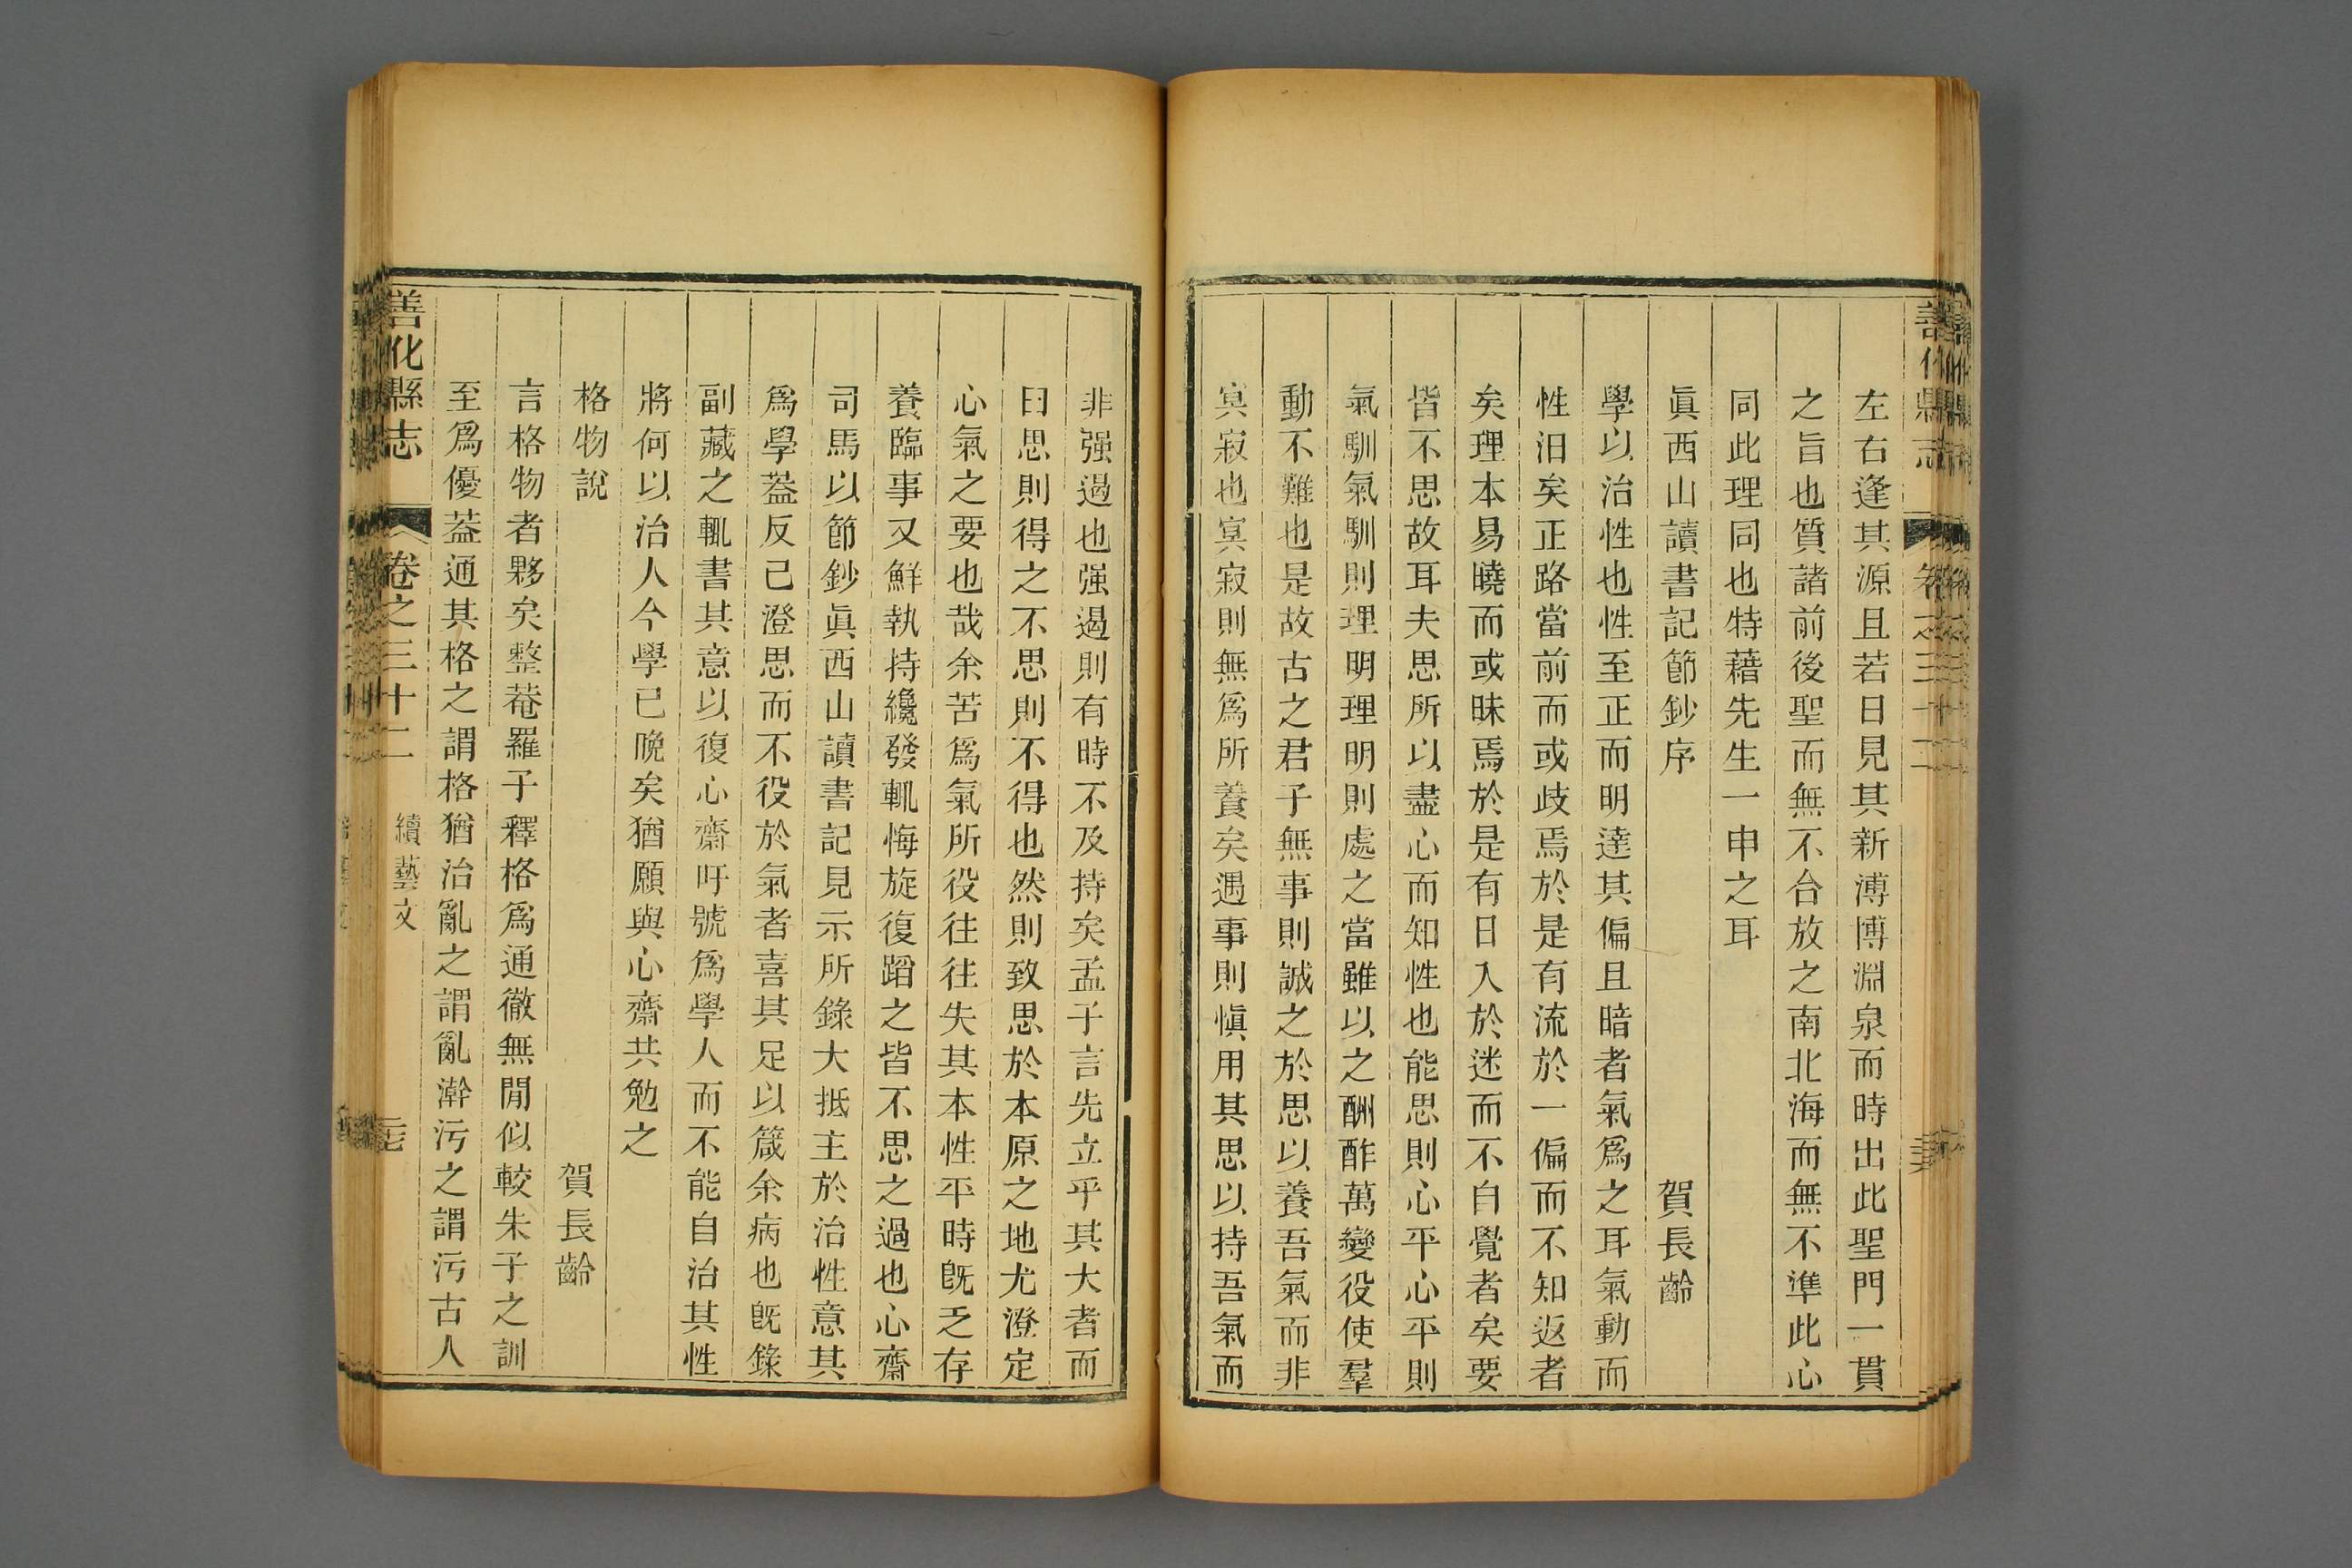 左右逢其源且若日見其新溥博淵泉而時出此聖門一貫
之旨也質諸前後聖而無不合放之南北海而無不準此心
同此理同也特藉先生一申之耳
眞西山讀書記節鈔序 賀長齡
學以治性也性至正而明達其偏且暗者氣爲之耳氣動而
性汨矣正路當前而或歧焉於是有流於一偏而不知返者
矣理本易曉而或昧焉於是有日入於迷而不自覺者矣要
皆不思故耳夫思所以盡心而知性也能思則心平心平則
氣馴氣馴則理明理明則處之當雖以之酬酢萬變役使羣
動不難也是故古之君子無事則誠之於思以養吾氣而非
冥寂也冥寂則無爲所養矣遇事則愼用其思以持吾氣而
非强遏也强遏則有時不及持矣孟子言先立乎其大者而
曰思則得之不思則不得也然則致思於本原之地尤澄定
心氣之要也哉余苦爲氣所役往往失其本性平時旣乏存
養臨事又鮮執持纔發輒悔旋復蹈之皆不思之過也心齋
司馬以節鈔眞西山讀書記見示所錄大抵主於治性意其
爲學葢反己澄思而不役於氣者喜其足以箴余病也旣錄
副藏之輒書其意以復心齋吁號爲學人而不能自治其性
將何以治人今學已晚矣猶願與心齋共勉之
格物說 賀長齡
言格物者夥矣整菴羅子釋格爲通徹無閒似較朱子之訓
至爲優葢通其格之謂格猶治亂之謂亂澣污之謂污古人
善化縣志 卷之三十二 續藝文 三七